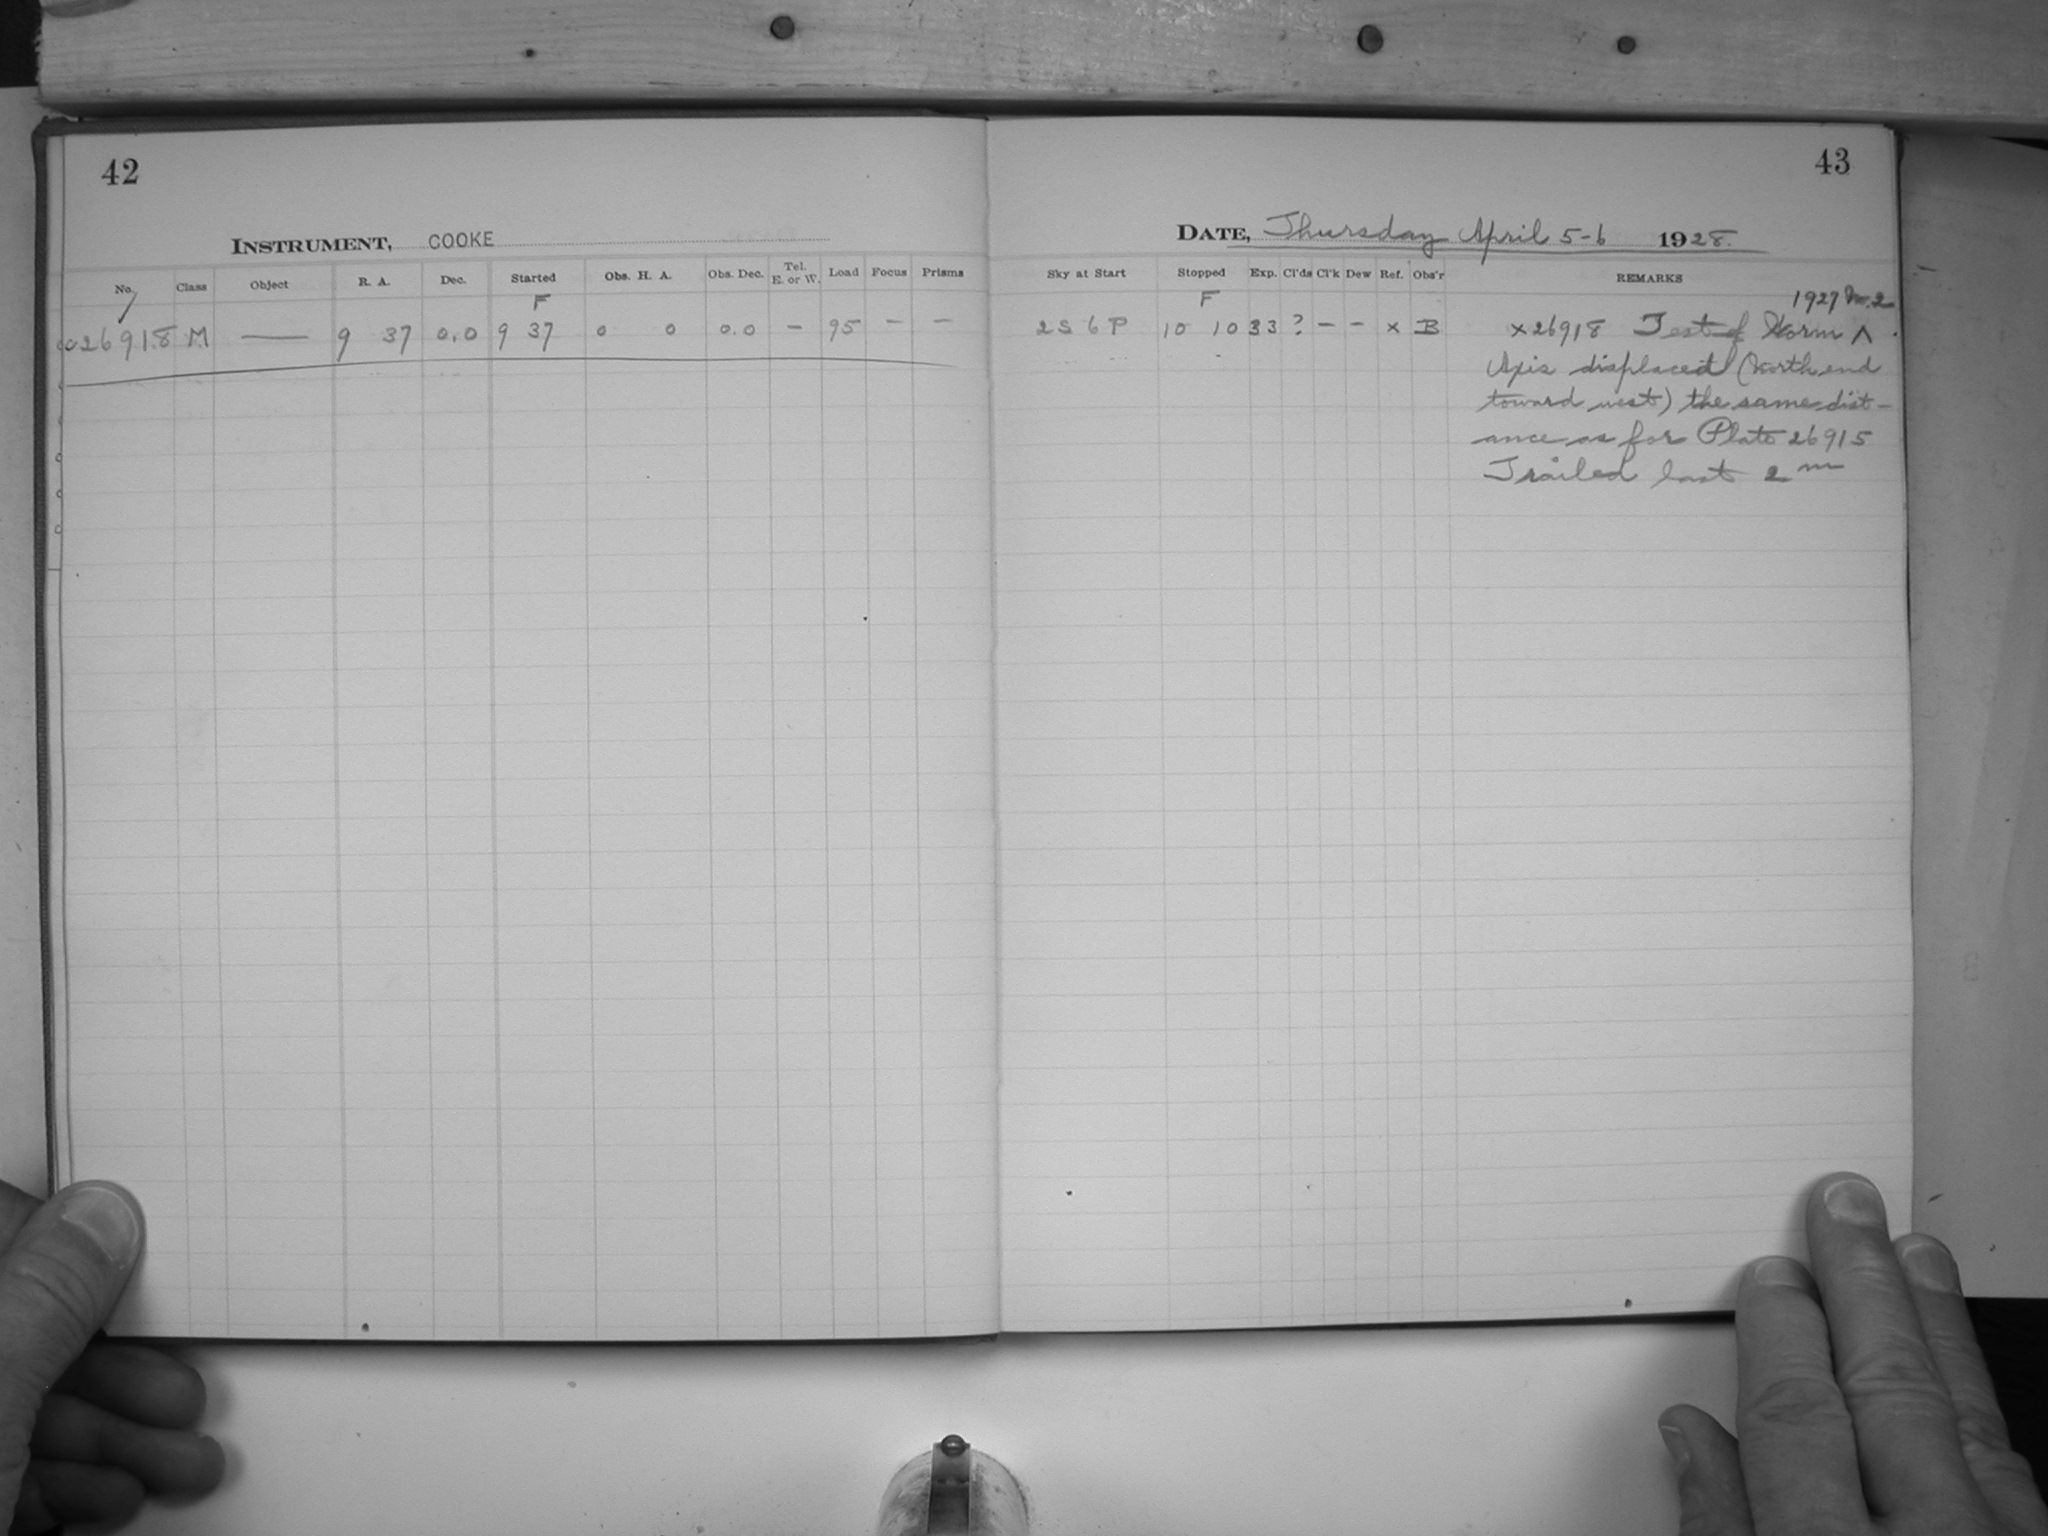 42
INSTRUMENT, COOKE
No. Class Object R. A. Dec. Started Obs. H. A. Obs. Dec. Tel. E. or W. Load Focus Prisms
F
26918 M — 9 37 0.0 9 37 0 0 0.0 – 95 – –
43
DATE, Thursday April 5-6 1928.
Sky at Start Stopped Exp. Cl'ds Cl'k Dew Ref. Obs'r REMARKS
F 1927 No. 2
2 S 6 P 10 10 33 ? – – x B x 26918 Test of Worm ^
Axis displaced (North end
toward west) the same dist-
ance as for Plate 26915
Trailed last 2 m